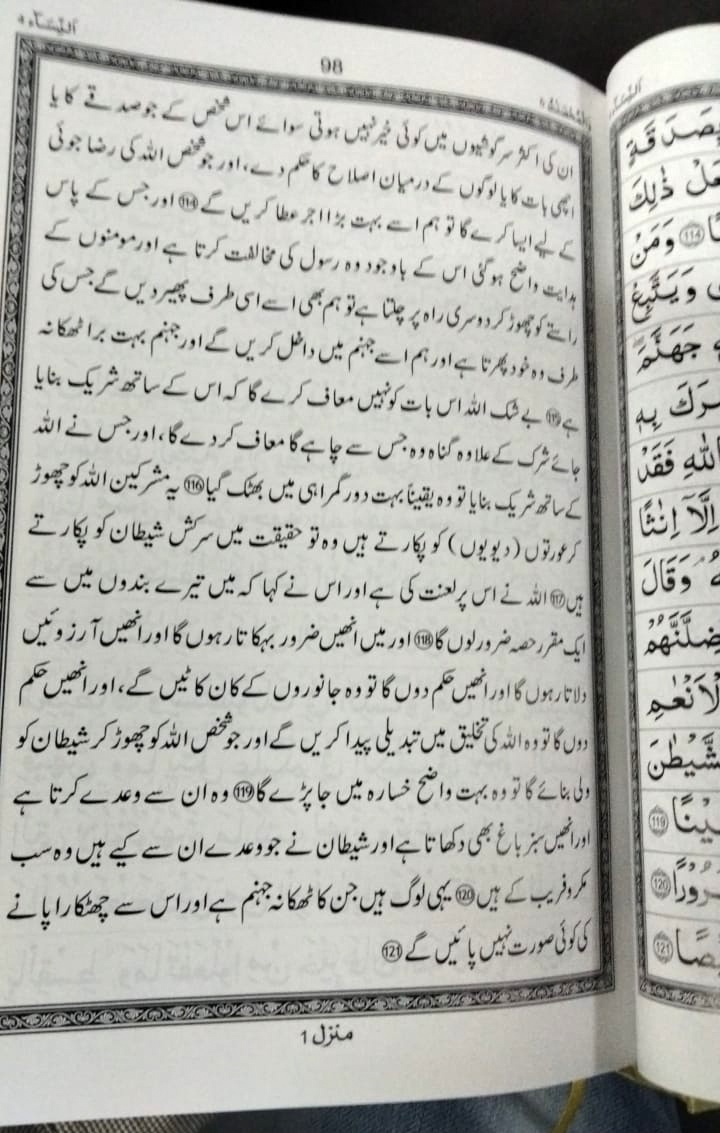 اَلنِّسَآء ٤
98
ان کی اکثر سرگوشیوں میں کوئی خیر نہیں ہوتی سوائے اس شخص کے جو صدقے کا یا
اچھی بات کا یا لوگوں کے درمیان اصلاح کا حکم دے، اور جو شخص اللہ کی رضا جوئی
کے لیے ایسا کرے گا تو ہم اسے بہت بڑا اجر عطا کریں گے 114 اور جس کے پاس
ہدایت واضح ہوگئی اس کے باوجود وہ رسول کی مخالفت کرتا ہے اور مومنوں کے
راستے کو چھوڑ کر دوسری راہ پر چلتا ہے تو ہم بھی اسے اسی طرف پھیر دیں گے جس کی
طرف وہ خود پھرتا ہے اور ہم اسے جہنم میں داخل کریں گے اور جہنم بہت برا ٹھکانہ
ہے 115 بے شک اللہ اس بات کو نہیں معاف کرے گا کہ اس کے ساتھ شریک بنایا
جائے شرک کے علاوہ گناہ وہ جس سے چاہے گا معاف کر دے گا، اور جس نے اللہ
کے ساتھ شریک بنایا تو وہ یقیناً بہت دور گمراہی میں بھٹک گیا 116 یہ مشرکین اللہ کو چھوڑ
کر عورتوں (دیویوں) کو پکارتے ہیں وہ تو حقیقت میں سرکش شیطان کو پکارتے
ہیں 117 اللہ نے اس پر لعنت کی ہے اور اس نے کہا کہ میں تیرے بندوں میں سے
ایک مقرر حصہ ضرور لوں گا 118 اور میں انھیں ضرور بہکاتا رہوں گا اور انھیں آرزوئیں
دلاتا رہوں گا اور انھیں حکم دوں گا تو وہ جانوروں کے کان کاٹیں گے، اور انھیں حکم
دوں گا تو وہ اللہ کی تخلیق میں تبدیلی پیدا کریں گے اور جو شخص اللہ کو چھوڑ کر شیطان کو
ولی بنائے گا تو وہ بہت واضح خسارہ میں جا پڑے گا 119 وہ ان سے وعدے کرتا ہے
اور انھیں سبز باغ بھی دکھاتا ہے اور شیطان نے جو وعدے ان سے کیے ہیں وہ سب
مکر و فریب کے ہیں 120 یہی لوگ ہیں جن کا ٹھکانہ جہنم ہے اور اس سے چھٹکارا پانے
کی کوئی صورت نہیں پائیں گے 121
منزل 1
صَدَقَةٍ
ذٰلِكَ
114 وَمَنْ
وَيَتَّبِعْ
جَهَنَّمَ
بِهٖ
فَقَدْ
اِلَّآ اِنٰثًا
وَقَالَ
119
120
121